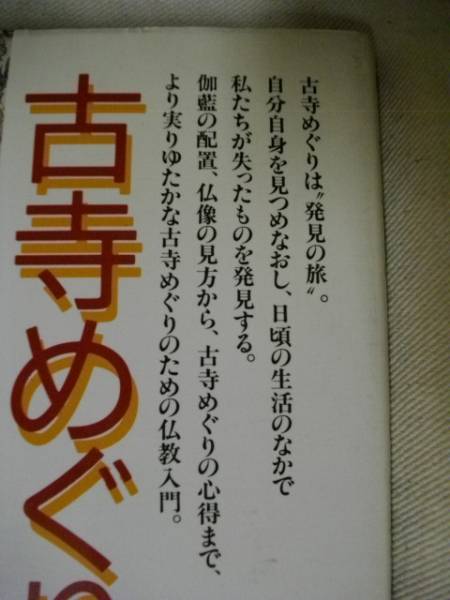 古寺めぐりは〝発見の旅〟。
自分自身を見つめなおし、日頃の生活のなかで
私たちが失ったものを発見する。
伽藍の配置、仏像の見方から、古寺めぐりの心得まで、
より実りゆたかな古寺めぐりのための仏教入門。
古寺めぐ